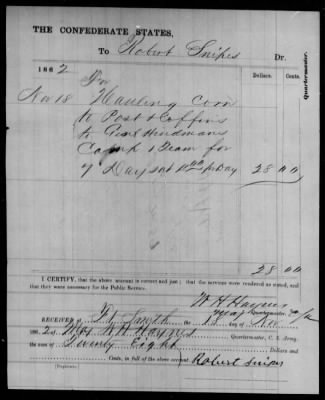 THE CONFEDERATE STATES,
To Robert Snipes Dr.
Quartermaster.
1862 Dollars. Cents.
For
Nov 18 Hauling Corn
to Post & Coffins
to Genl Hindmans
Camp 1 Team for
7 Days at per Day 28 00
28 00
I CERTIFY, that the above account is correct and just; that the services were rendered as stated, and that
they were necessary for the Public Service.
W H Haynes
Maj Quartermaster,
RECEIVED at Ft Smith the 18 day of Nov
1862 of Maj W H Haynes Quartermaster, C. S. Army,
the sum of Twenty Eight Dollars and
Cents, in full of the above account.
Robert Snipes
(Duplicate)